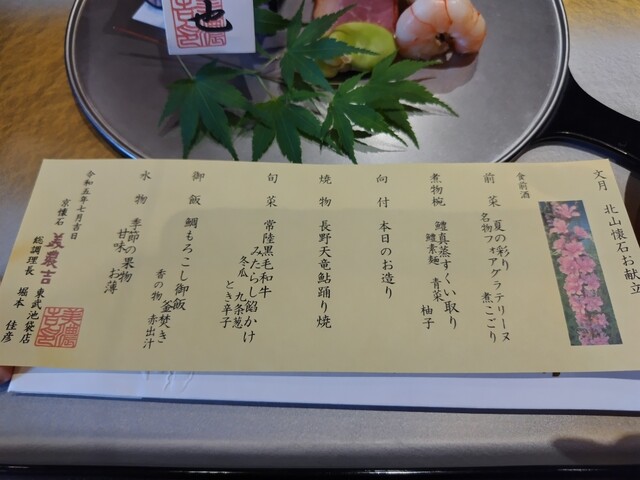 也
文月 北山懐石お献立
食前酒
前菜 夏の彩り
名物フォアグラテリーヌ
煮こごり
煮物椀 鱧真蒸すくい取り
鱧素麺 青菜 柚子
向付 本日のお造り
焼物 長野天竜鮎踊り焼
旬菜 常陸黒毛和牛
みたらし餡かけ
冬瓜 九条葱 とき辛子
御飯 鯛もろこし御飯
釜焚き
香の物 赤出汁
水物 季節の果物
甘味 お薄
令和五年七月吉日
京懐石 美濃吉 東武池袋店
総調理長 堀本 佳彦
美濃吉